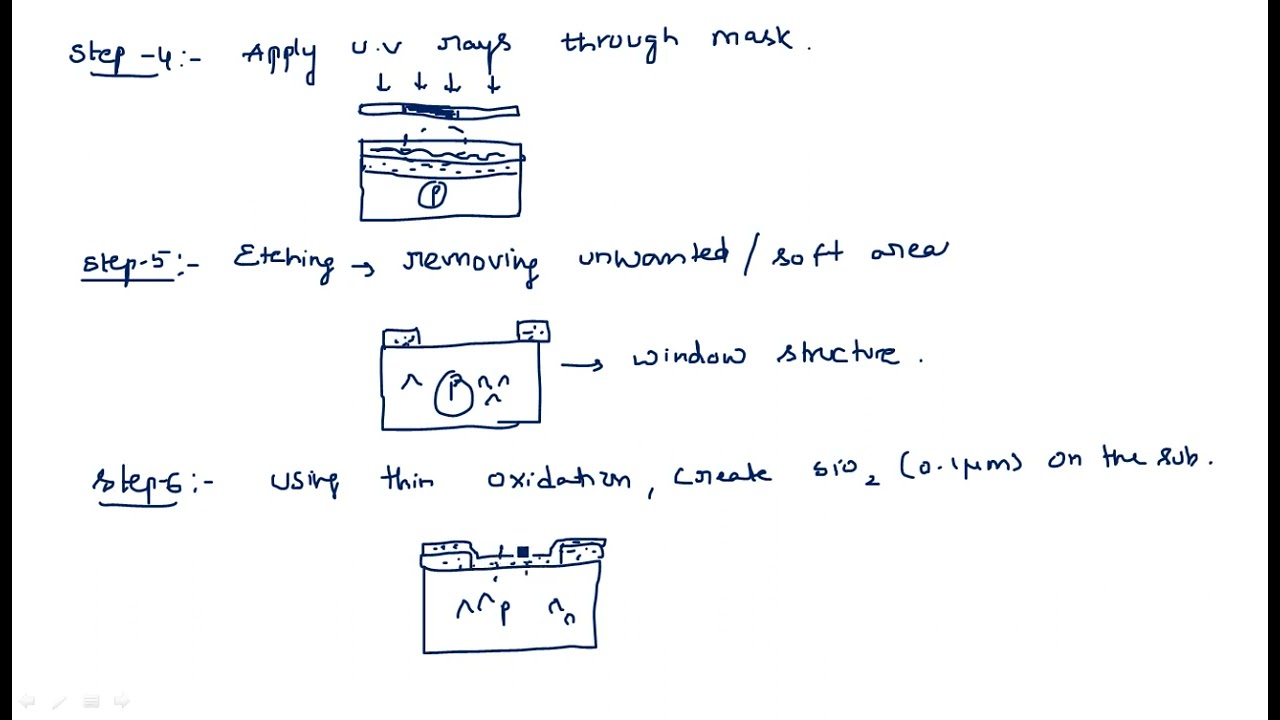 Step-4:- Apply U.V rays through mask.
P
Step-5:- Etching → removing unwanted / soft area
P
→ window structure.
Step-6:- Using thin oxidation, create SiO₂ (0.1μm) on the sub.
P